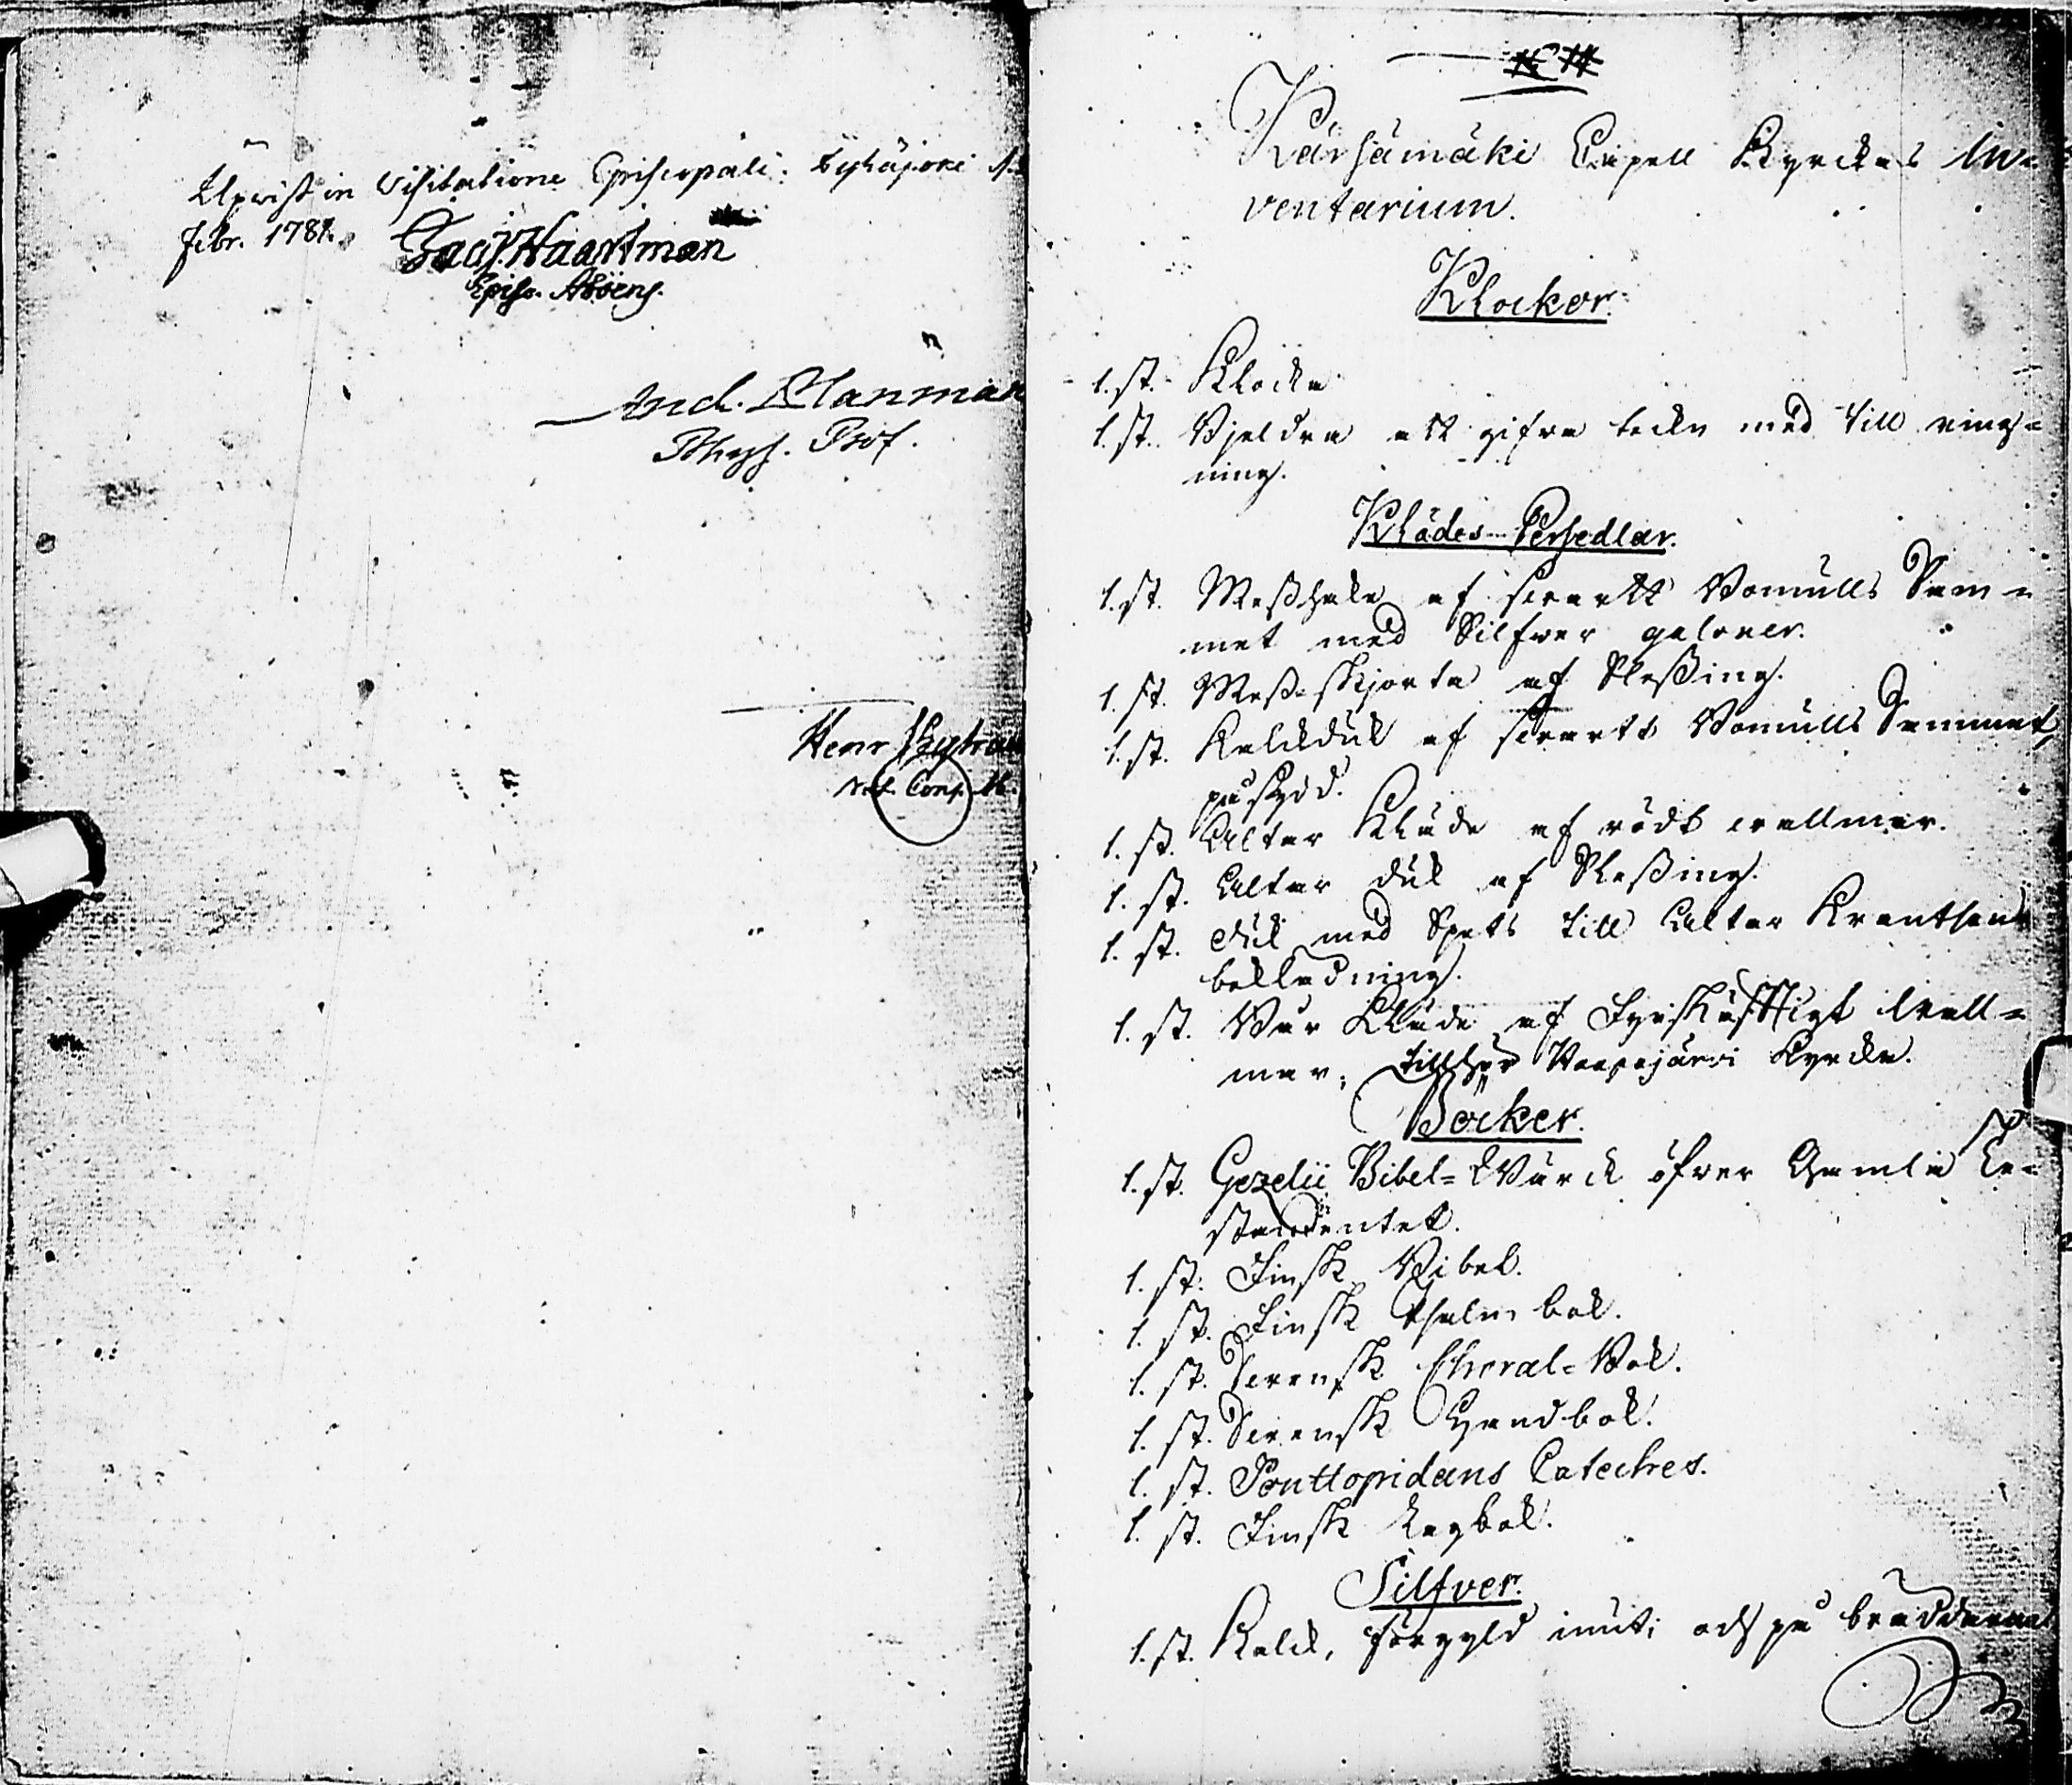 Upvist in Visitatione Episcopali. Pyhäjoki
Febr. 1781.
Jac. Haartman
Episc. Aboens.
And. Planman
Phys. Prof.
Henr.
Not. Cons.
Kärsämäki Capell Kyrckas In-
ventarium.
Klockor.
1. st. Klocka
1. st. Bjellra att gifva tecken med till ring-
ning.
Klädes-Persedlar.
1. st. Meßhake af svartt Bomulls Sam-
met med Silfver galoner.
1. st. Meß-skjorta af Sleßing.
1. st. Kalckduk af svartt Bomulls Sammet,
på sydd.
1. st. Altar Kläde af rödt vallmar.
1. st. Altar duk af Sleßing.
1. st. duk med Spets till Altar Krantsens
beklädning.
1. st. Bår Kläde af Tyskskäfftigt vall-
mar; tillhör Haapajärvi Kyrcka.
Böcker.
1. st. Gezelii Bibel-Värck öfver Gamla Te-
stamentet.
1. st. Finsk Bibel.
1. st. Finsk Psalm bok.
1. st. Svensk Choral-Bok.
1. st. Svensk Handbok.
1. st. Ponttopidans Cateches.
1. st. Finsk Lagbok.
Silfver.
1. st. Kalck, förgyld inuti och på bräddarna